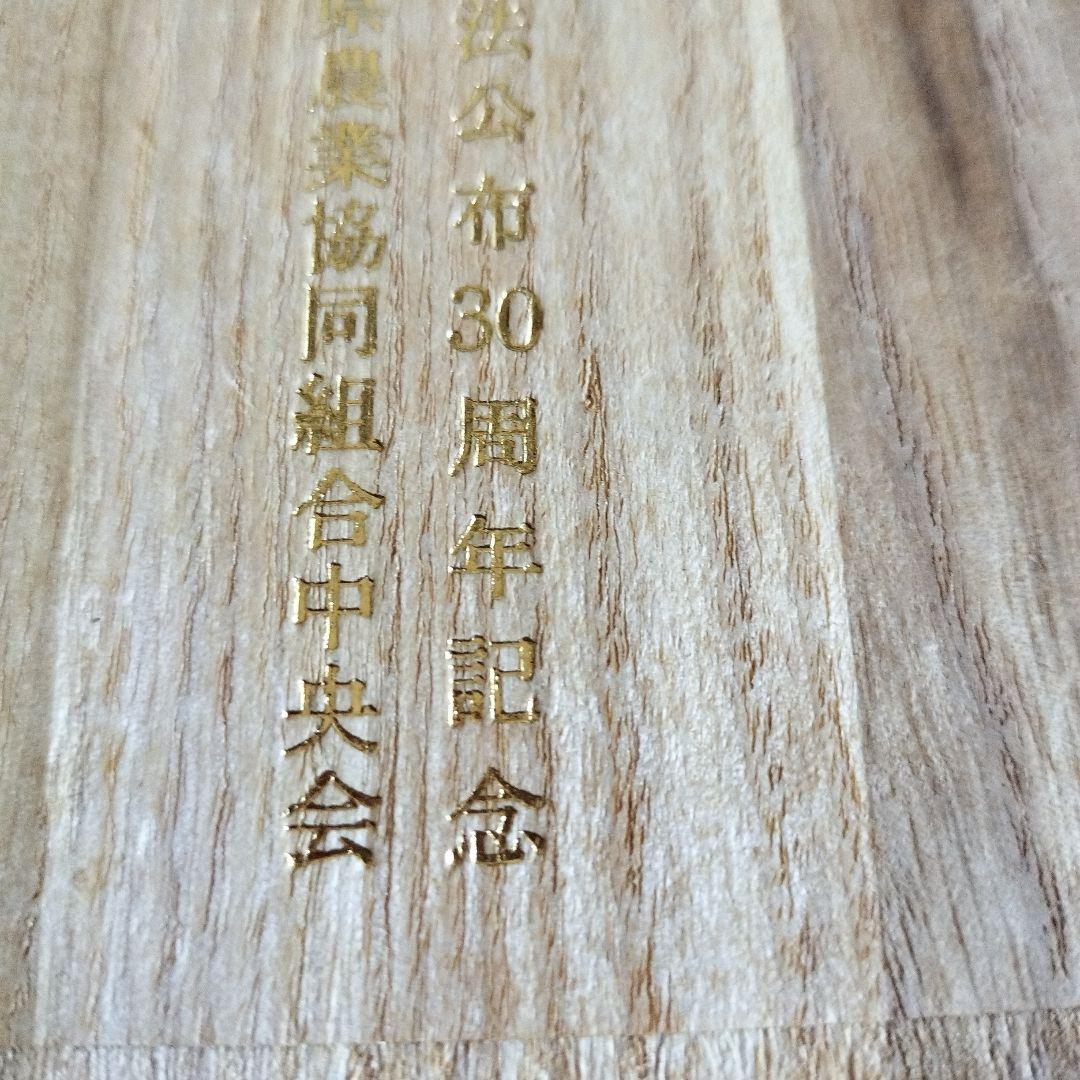 法公布30周年記念
県農業協同組合中央会